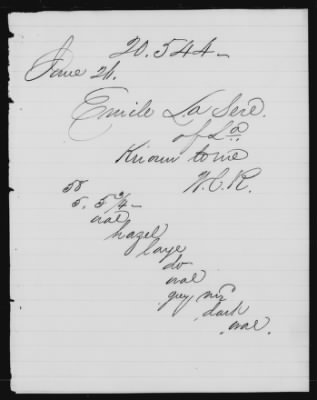 20.544-
June 26.
Emile La Sere.
of La
Known to me
H.C.R.
58
5. 5 3/4-
oval
hazel
large
do
oval
grey mix
dark
oval.